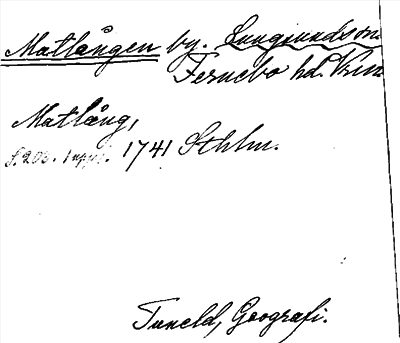 Matlången by. Lungsunds sn.
Fernebo hd. Vrm
Matlång,
S. 203. 1 uppl. 1741 Sthlm.
Tuneld, Geografi.